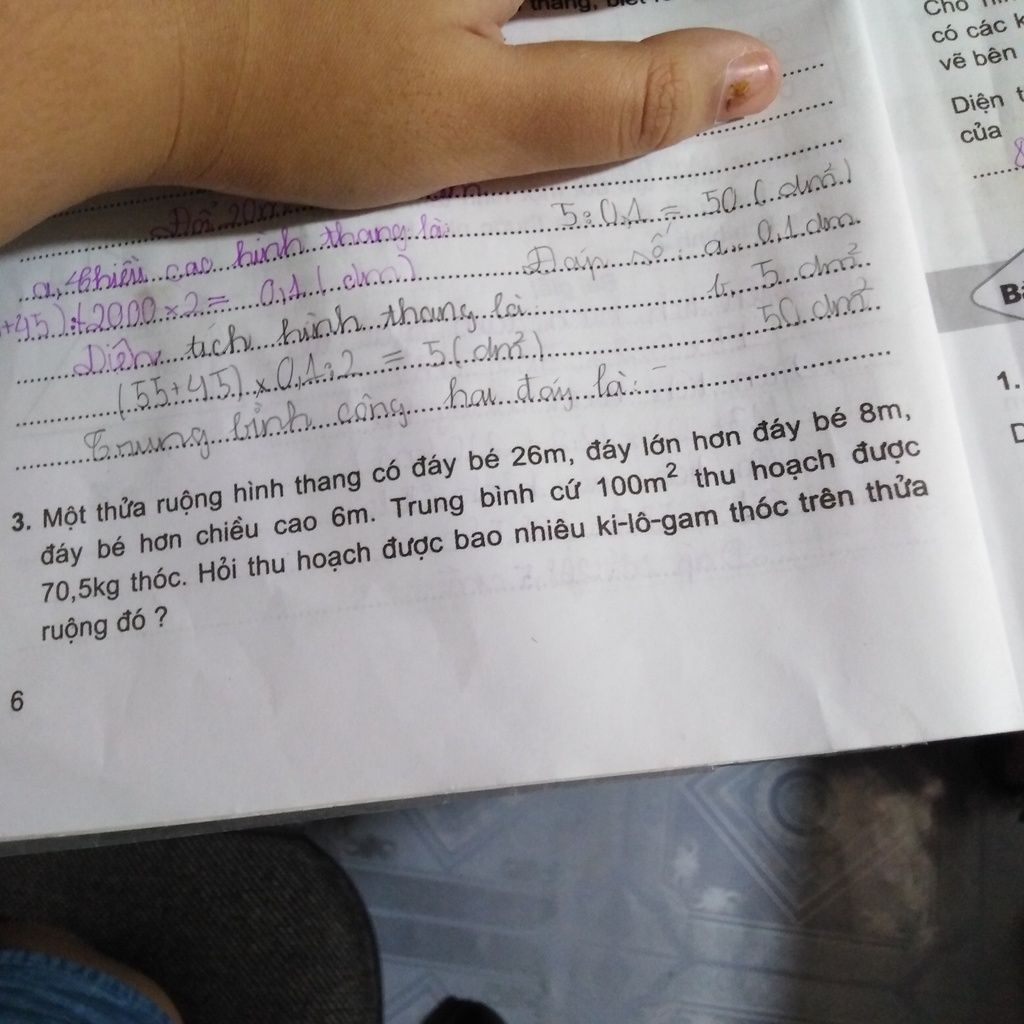 thang, biết
Đổi 20
a, Chiều cao hình thang là:
+45) : 2000 x 2 = 0,1 (dm)
Diện tích hình thang là
(55+45) x 0,1 : 2 = 5 (dm²)
Trung bình cộng hai đáy là:
5 : 0,1 = 50 (dm)
Đáp số: a. 0,1 dm
b, 5 dm²
50 dm²
3. Một thửa ruộng hình thang có đáy bé 26m, đáy lớn hơn đáy bé 8m,
đáy bé hơn chiều cao 6m. Trung bình cứ 100m² thu hoạch được
70,5kg thóc. Hỏi thu hoạch được bao nhiêu ki-lô-gam thóc trên thửa
ruộng đó ?
6
Cho
có các
vẽ bên
Diện
của
1.